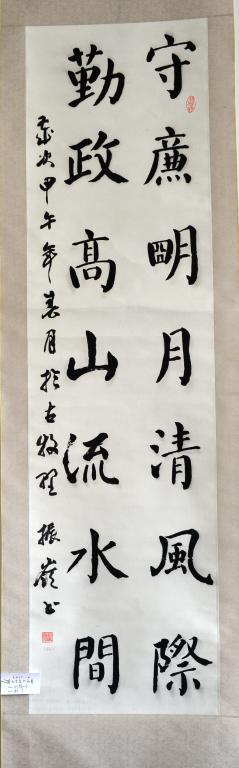 守廉明月清風際
勤政高山流水間
歲次甲午年春月於古牧野 振嶺書